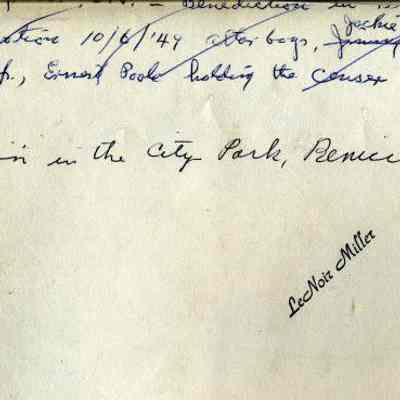 Benediction in
10/6/'49 altar boys, Jackie
Jr., Ernest Poole holding the censer
in the City Park, Benic
LeNoir Miller